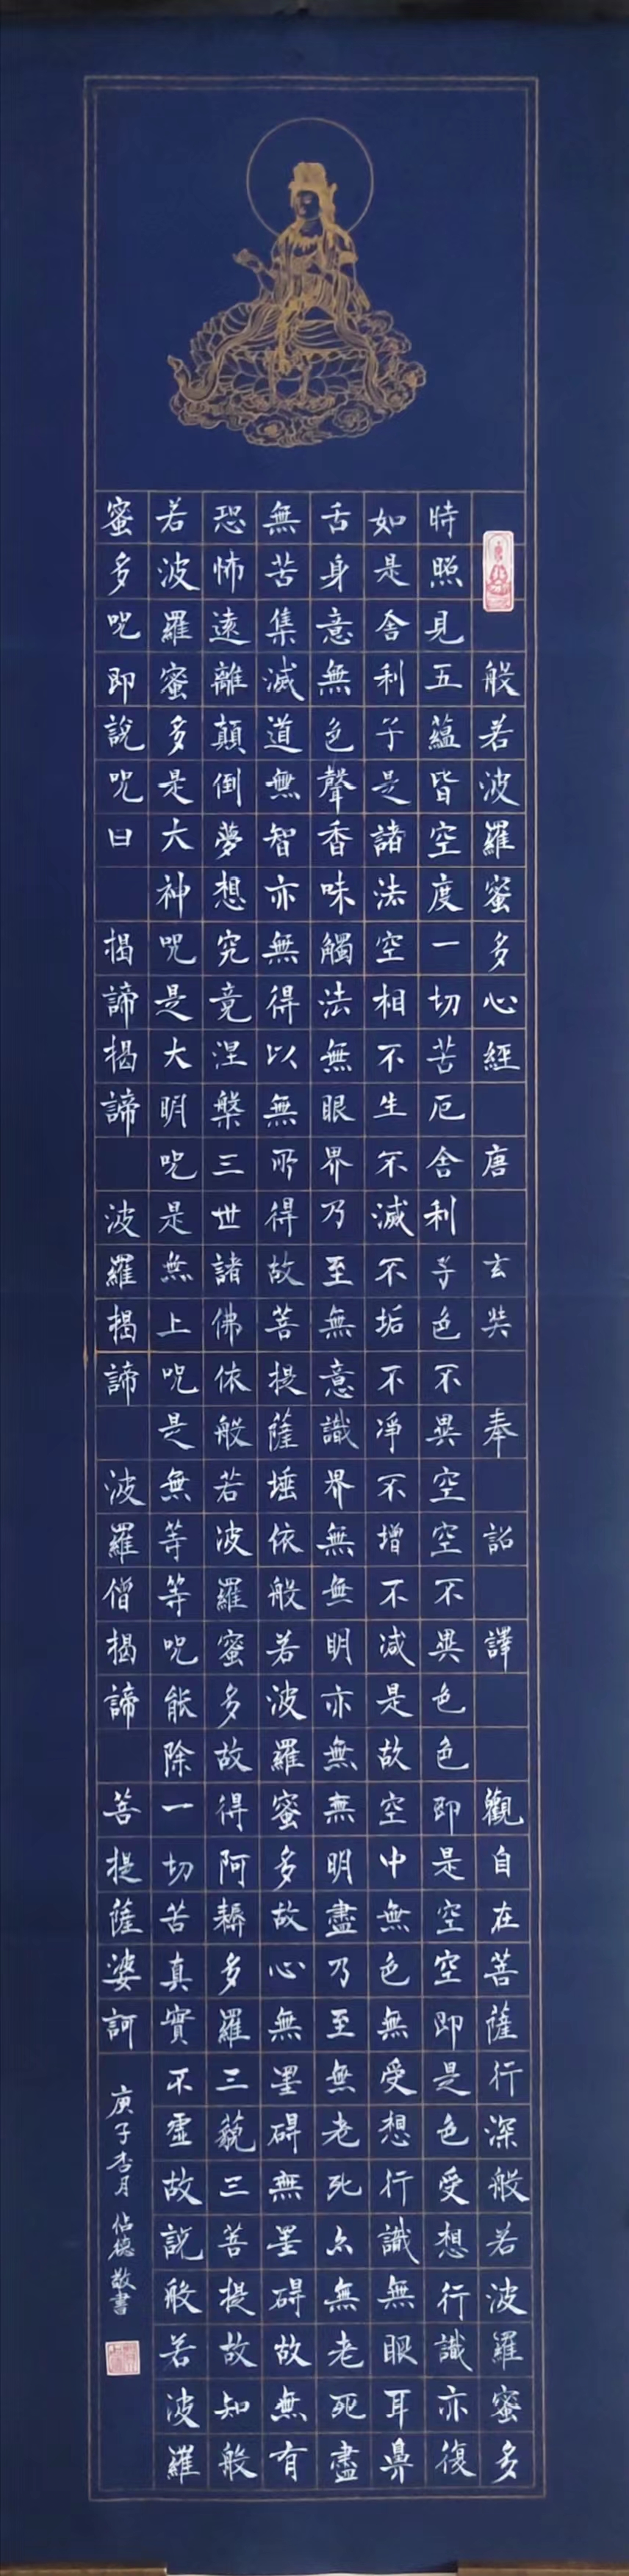 般若波羅蜜多心經 唐 玄奘 奉 詔 譯 觀自在菩薩行深般若波羅蜜多
時照見五蘊皆空度一切苦厄舍利子色不異空空不異色色即是空空即是色受想行識亦復
如是舍利子是諸法空相不生不滅不垢不凈不增不減是故空中無色無受想行識無眼耳鼻
舌身意無色聲香味觸法無眼界乃至無意識界無無明亦無無明盡乃至無老死亦無老死盡
無苦集滅道無智亦無得以無所得故菩提薩埵依般若波羅蜜多故心無罣碍無罣碍故無有
恐怖遠離顛倒夢想究竟涅槃三世諸佛依般若波羅蜜多故得阿耨多羅三藐三菩提故知般
若波羅蜜多是大神咒是大明咒是無上咒是無等等咒能除一切苦真實不虛故說般若波羅
蜜多咒即說咒曰 揭諦揭諦 波羅揭諦 波羅僧揭諦 菩提薩婆訶
庚子杏月 敬書